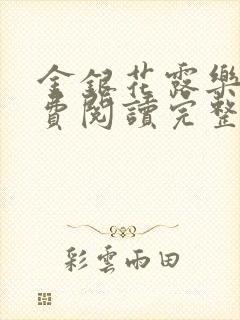 金銀花露樂
費閱讀完整
彩雲雨田